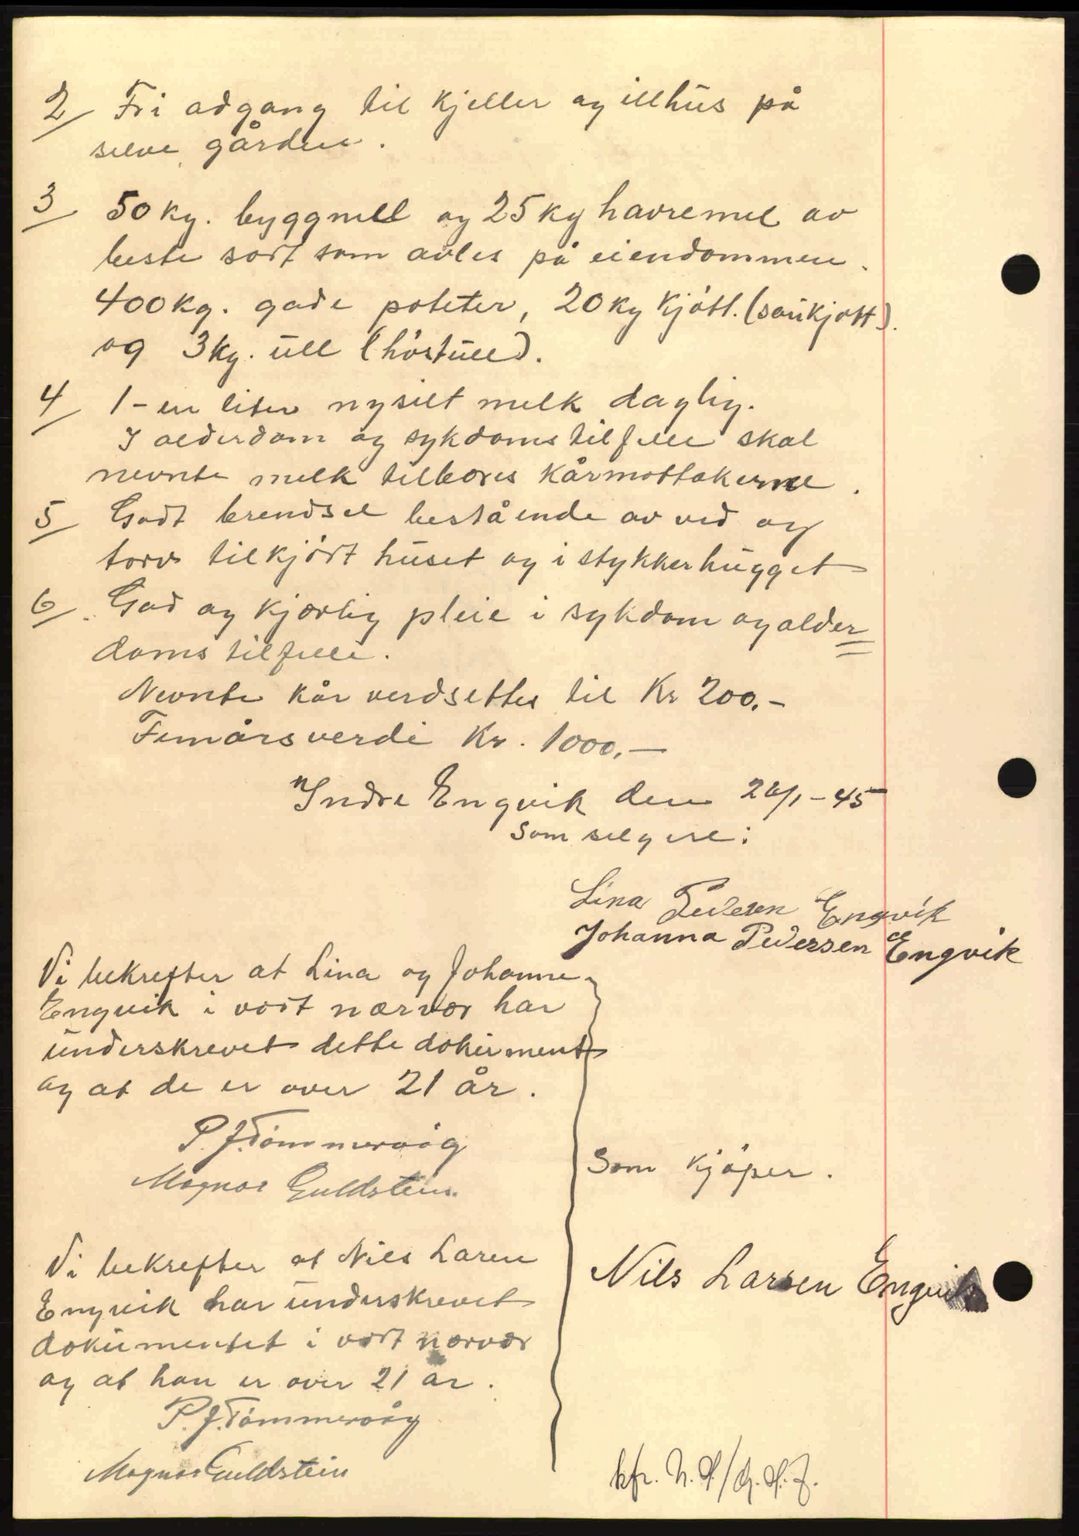 2/ Fri adgang til kjeller og illhus på
selve gården.
3/ 50 kg. byggmell og 25 kg havremel av
beste sort som avles på eiendommen.
400 kg. gode poteter, 20 kg kjött. (saukjøtt).
og 3 kg. ull (höstull).
4/ 1 - en liter nysilt melk daglig.
I alderdom og sykdoms tilfelle skal
nevnte melk tilbæres kårmottakerne.
5/ Godt brendsel bestående av ved og
torv tilkjört huset og i stykker hugget
6/ God og kjærlig pleie i sykdom og alder
doms tilfelle.
Nevnte kår verdsettes til Kr 200.-
Femårsverdi Kr. 1000.—
Indre Engvik den 26/1 - 45
Som selgere:
Lina Pedersen Engvik
Johanna Pedersen Engvik
Vi bekrefter at Lina og Johanne
Engvik i vort nærvær har
underskrevet dette dokument
og at de er over 21 år.
P. J. Tömmervåg
Magnar Guldstein
Som kjöper.
Vi bekrefter at Nils Larsen
Engvik har underskrevet
dokumentet i vort nærvær
og at han er over 21 år.
Nils Larsen Engvik
P. J. Tömmervåg
Magnar Guldstein
kfr.